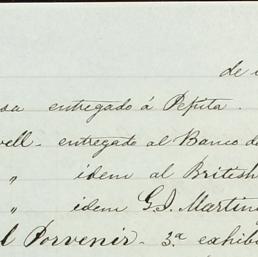 de
sa entregado á Pepita.
well. entregado al Banco de
" idem al British
" idem G. J. Martin
l Porvenir. 3.ª exhib